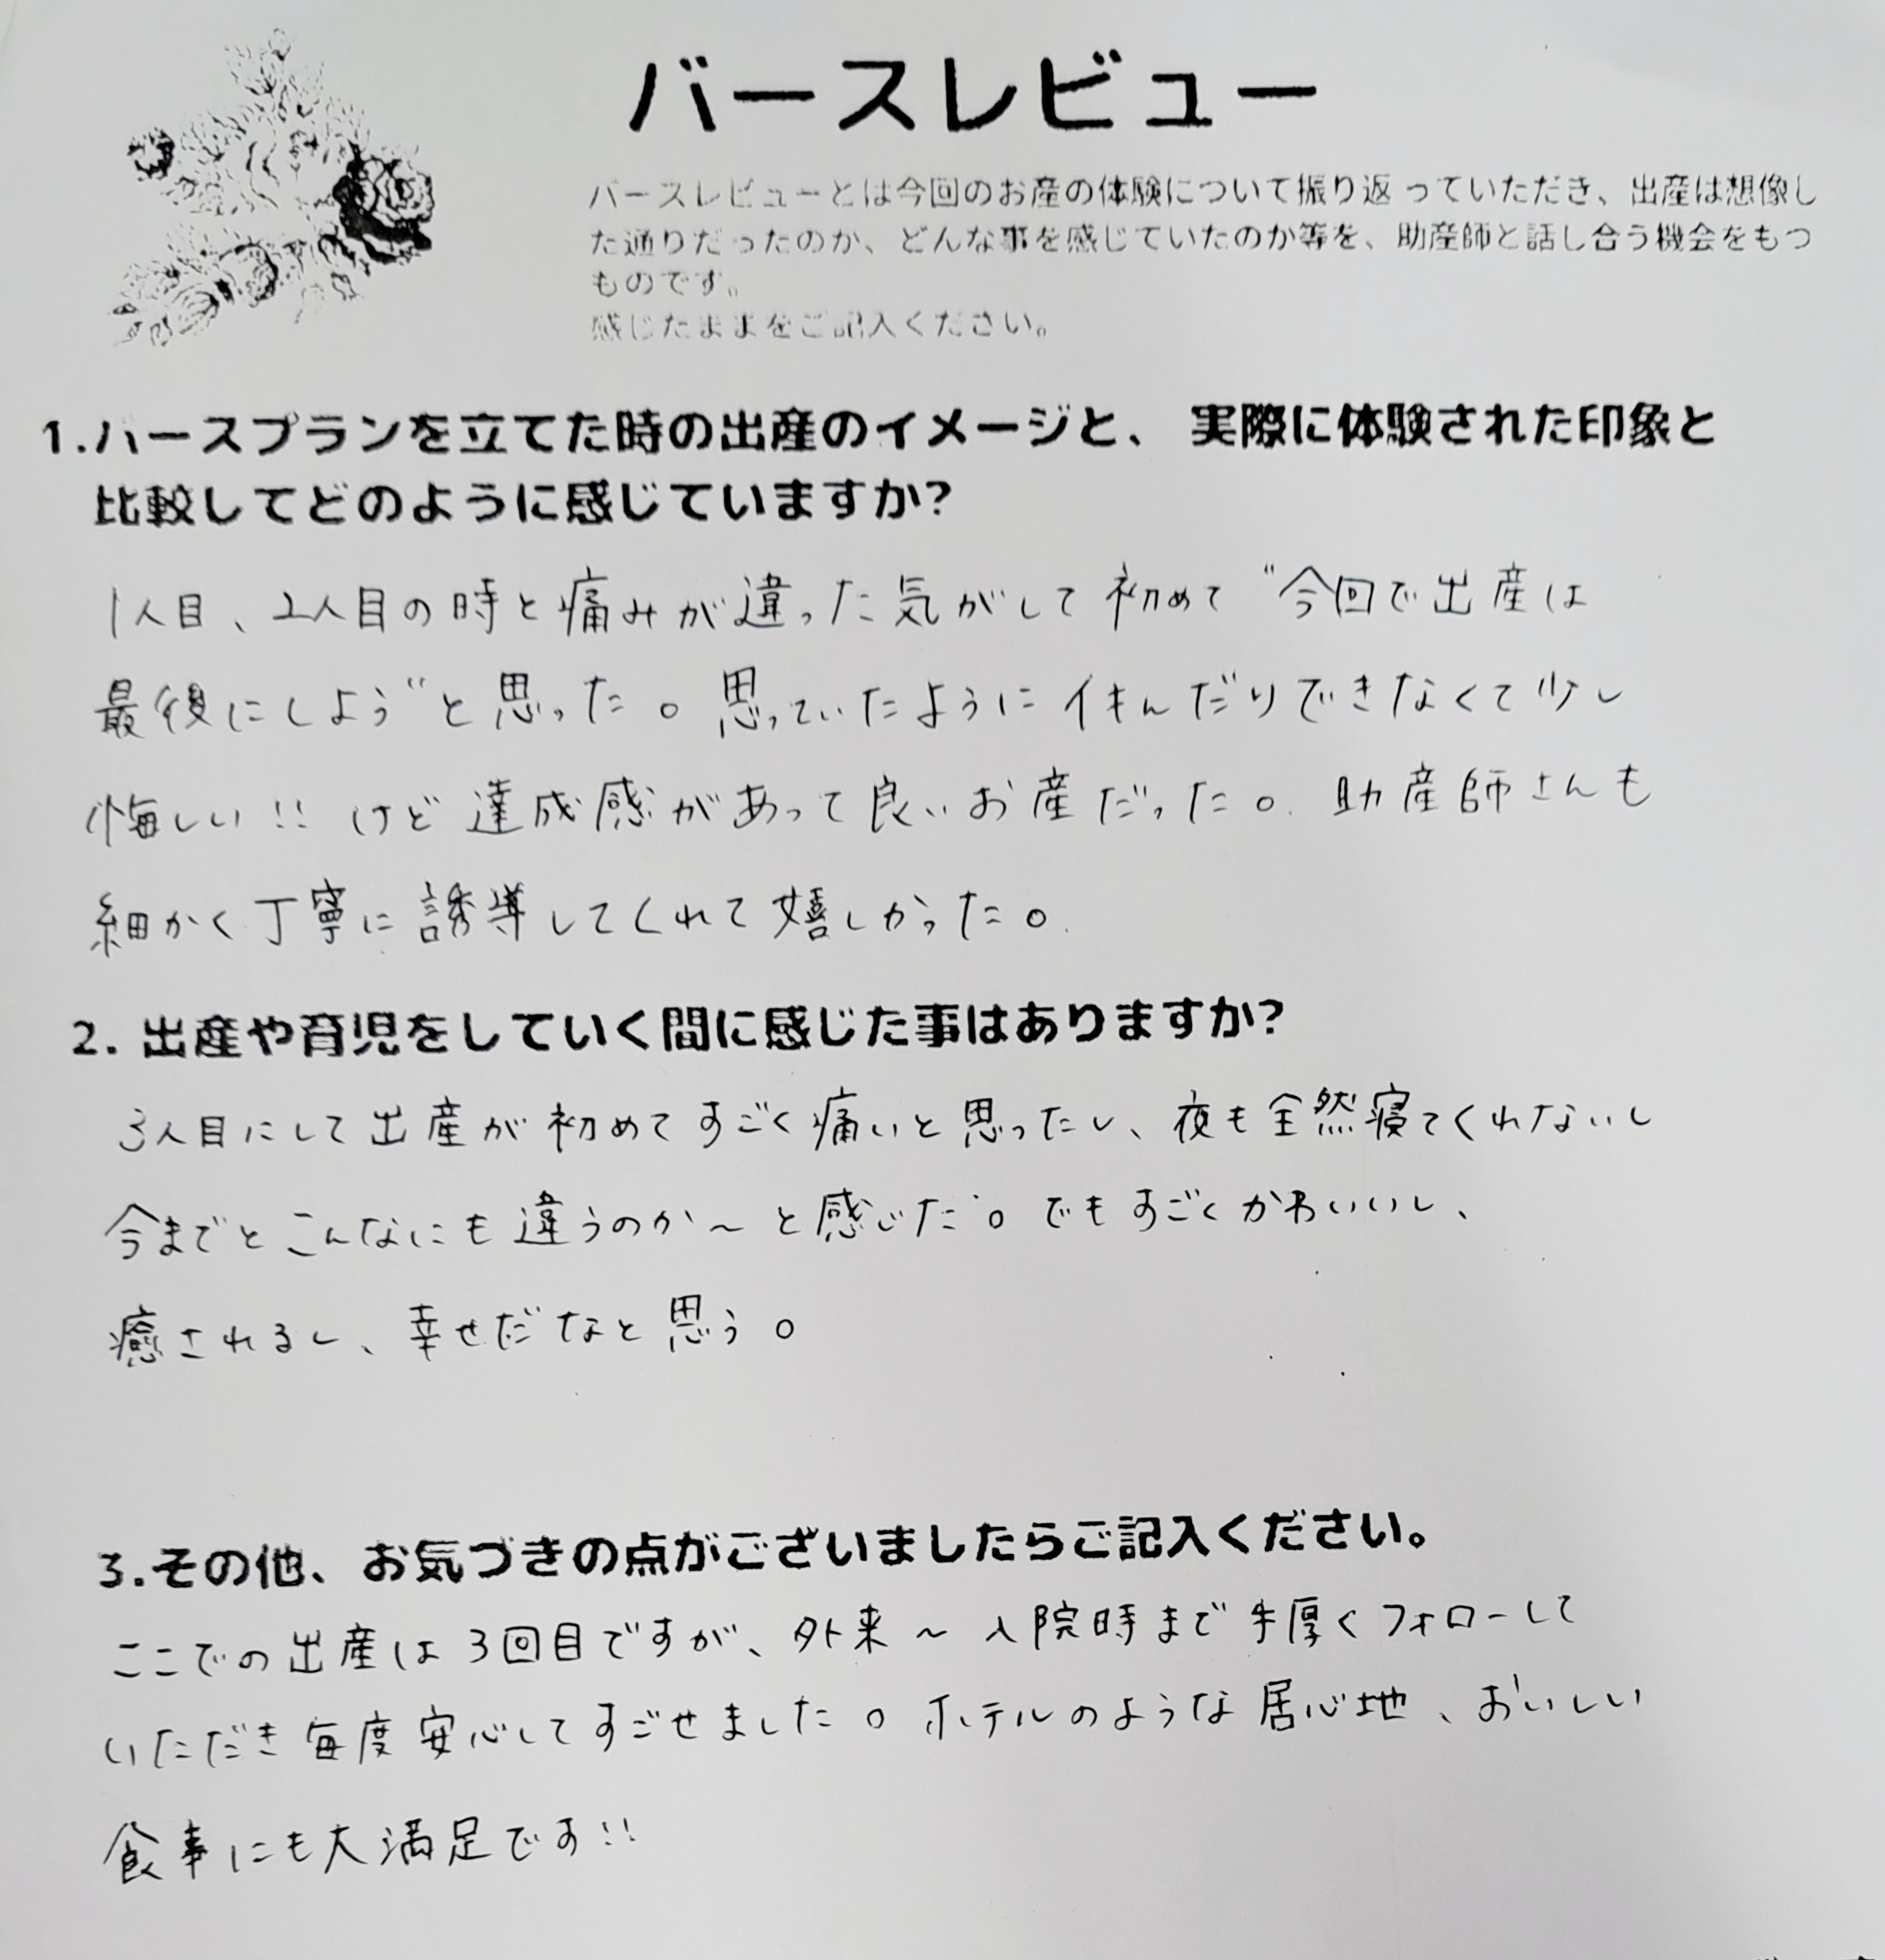 バースレビュー
バースレビューとは今回のお産の体験について振り返っていただき、出産は想像し
た通りだったのか、どんな事を感じていたのか等を、助産師と話し合う機会をもつ
ものです。
感じたままをご記入ください。
1.バースプランを立てた時の出産のイメージと、実際に体験された印象と
比較してどのように感じていますか?
1人目、2人目の時と痛みが違った気がして初めて"今回で出産は
最後にしよう"と思った。思っていたようにイキんだりできなくて少し
悔しい!! けど達成感があって良いお産だった。助産師さんも
細かく丁寧に誘導してくれて嬉しかった。
2. 出産や育児をしていく間に感じた事はありますか?
3人目にして出産が初めてすごく痛いと思ったし、夜も全然寝てくれないし
今までとこんなにも違うのか～と感じた。でもすごくかわいいし、
癒されるし、幸せだなと思う。
3.その他、お気づきの点がございましたらご記入ください。
ここでの出産は3回目ですが、外来～入院時まで手厚くフォローして
いただき毎度安心してすごせました。ホテルのような居心地、おいしい
食事にも大満足です!!